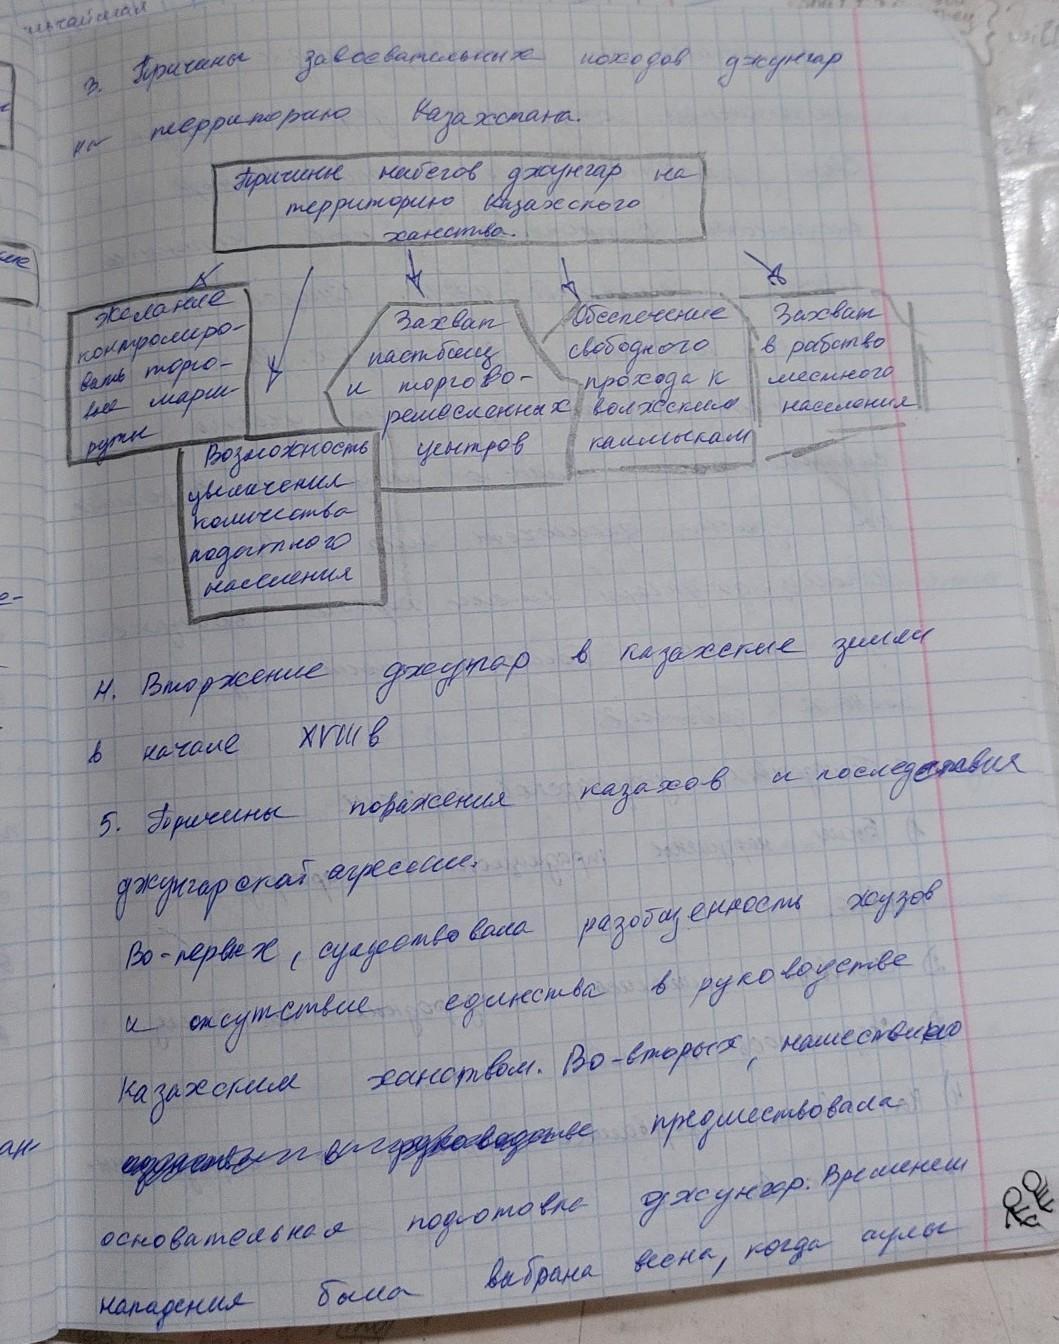 3. Причины завоевательных походов джунгар
на территорию Казахстана.
Причины набегов джунгар на
территорию Казахского
ханства.
Желание
контролиро-
вать торго-
вые марш-
руты
Возможность
увеличения
количества
податного
населения
Захват
пастбищ
и торгово-
ремесленных
центров
Обеспечение
свободного
прохода к
волжским
калмыкам
Захват
в рабство
местного
населения
4. Вторжение джунгар в казахские земли
в начале XVIII в
5. Причины поражения казахов и последствия
джунгарской агрессии.
Во-первых, существовала разобщенность жузов
и отсутствие единства в руководстве
Казахским ханством. Во-вторых, нашествию
предшествовала
основательная подготовка джунгар. Временем
нападения была выбрана весна, когда аулы